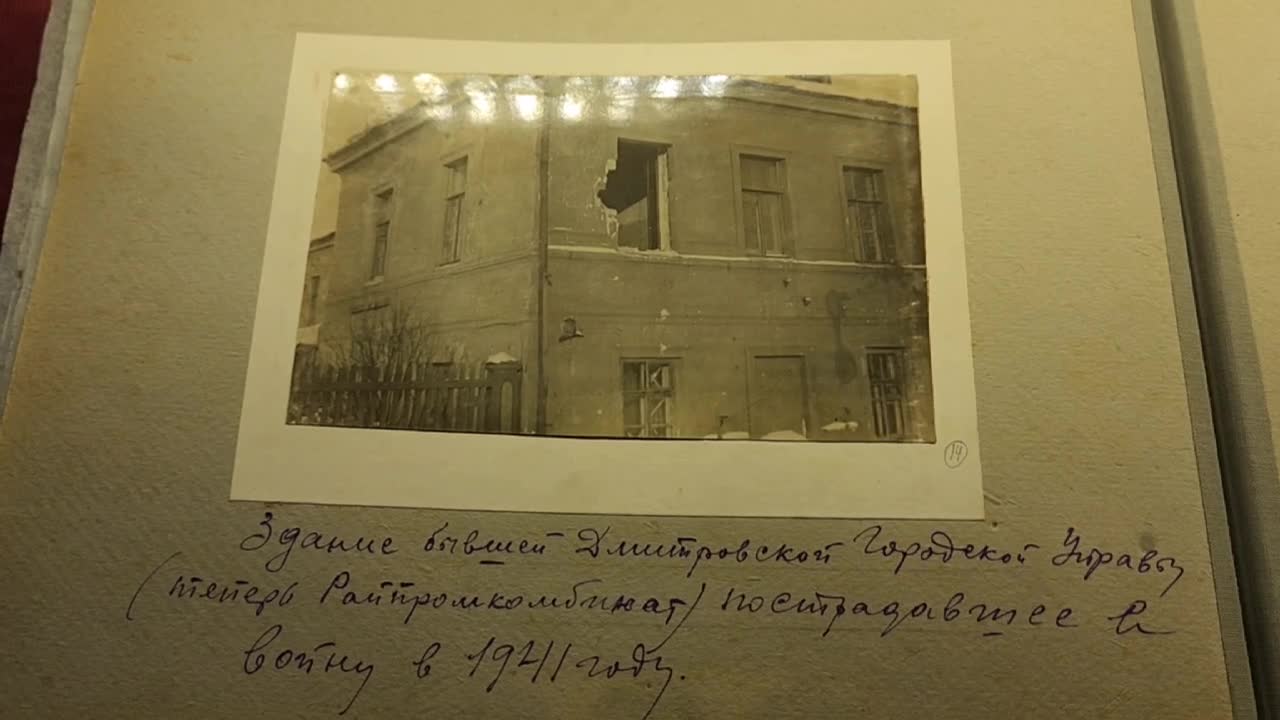 14
Здание бывшей Дмитровской Городской Управы
(теперь Райпромкомбинат) пострадавшее в
войну в 1941 году.